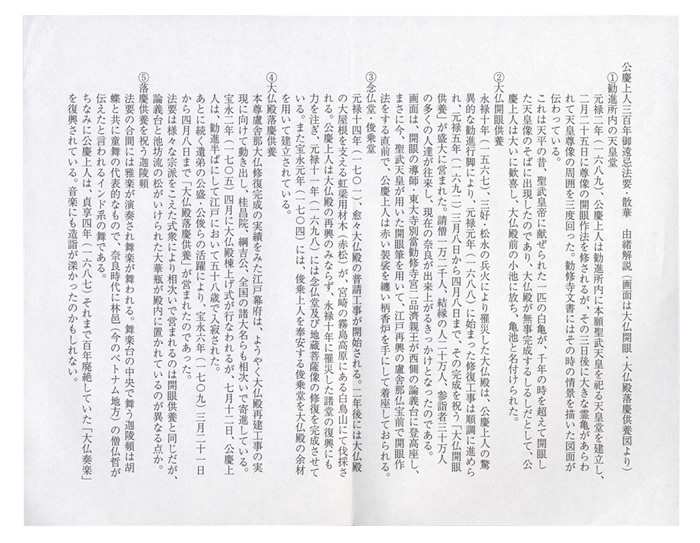 公慶上人三百年御遠忌法要・散華　由緒解説(画面は大仏開眼・大仏殿落慶供養図より)
①勧進所内の天皇堂
元禄二年(一六八九)、公慶上人は勧進所内に本願聖武天皇を祀る天皇堂を建立し、
二月二十五日に尊像の開眼作法を修されるが、その三日後に大きな霊亀があらわ
れて天皇尊像の周囲を三度回った。勧修寺文書にはその時の情景を描いた図面が
伝わっている。
これは天平の昔、聖武皇帝に献ぜられた一匹の白亀が、千年の時を超えて開眼し
た天皇像のそばに出現したのであり、大仏殿が無事完成するしるしだとして、公
慶上人は大いに歓喜し、大仏殿前の小池に放ち、亀池と名付けられた。
②大仏開眼供養
永禄十年(一五六七)、三好・松永の兵火により罹災した大仏殿は、公慶上人の驚
異的な勧進行脚により、元禄元年(一六八八)に始まった修復工事は順調に進めら
れ、元禄五年(一六九二)三月八日から四月八日まで、その完成を祝う「大仏開眼
供養」が盛大に営まれた。請僧一万二千人、結縁の人二十万人、参詣者三十万人
の多くの人達が往来し、現在の奈良が出来上がるきっかけとなったのである。
画面は、開眼の導師・東大寺別當勧修寺宮二品済親王が西側の論義台に登高座し、
まさに今、聖武天皇が用いた開眼筆を用いて、江戸再興の盧舎那仏宝前で開眼作
法をする直前で、公慶上人は赤い袈裟を纏い柄香炉を手にして着座しておられる。
③念仏堂・俊乗堂
元禄十四年(一七〇一)、愈々大仏殿の普請工事が開始される。二年後には大仏殿
の大屋根を支える虹梁用材木(赤松)が、宮崎の霧島高原にある白鳥山にて伐採さ
れる。公慶上人は大仏殿の再興のみならず、永禄十年に罹災した諸堂の復興にも
力を注ぎ、元禄十一年(一六九八)には念仏堂及び地蔵菩薩像の修復を完成させて
いる。また宝永元年(一七〇四)には、俊乗上人を奉安する俊乗堂を大仏殿の余材
を用いて建立されている。
④大仏殿落慶供養
本尊盧舎那大仏修復完成の実績をみた江戸幕府は、ようやく大仏殿再建工事の実
現に向けて動き出し、桂昌院、綱吉公、全国の諸大名らも相次いで寄進している。
宝永二年(一七〇五)四月に大仏殿棟上げ式が行なわれるが、七月十二日、公慶上
人は、勧進半ばにして江戸において五十八歳で入寂された。
あとに続く遺弟の公盛・公俊らの活躍により、宝永六年(一七〇九)三月二十一日
から四月八日まで「大仏殿落慶供養」が営まれたのであった。
法要は様々な宗派をこえた式衆により相次いで営まれるのは開眼供養と同じだが、
論義台と池坊流の松がいけられた大華瓶が殿内に置かれているのが異なる点か。
⑤落慶供養を祝う迦陵頻
法要の合間には雅楽が演奏され舞楽が舞われる。舞楽台の中央で舞う迦陵頻は胡
蝶と共に童舞の代表的なもので、奈良時代に林邑(今のベトナム地方)の僧仏哲が
伝えたと言われるインド系の舞である。
ちなみに公慶上人は、貞享四年(一六八七)それまで百年廃絶していた「大仏奏楽」
を復興されている。音楽にも造詣が深かったのかもしれない。